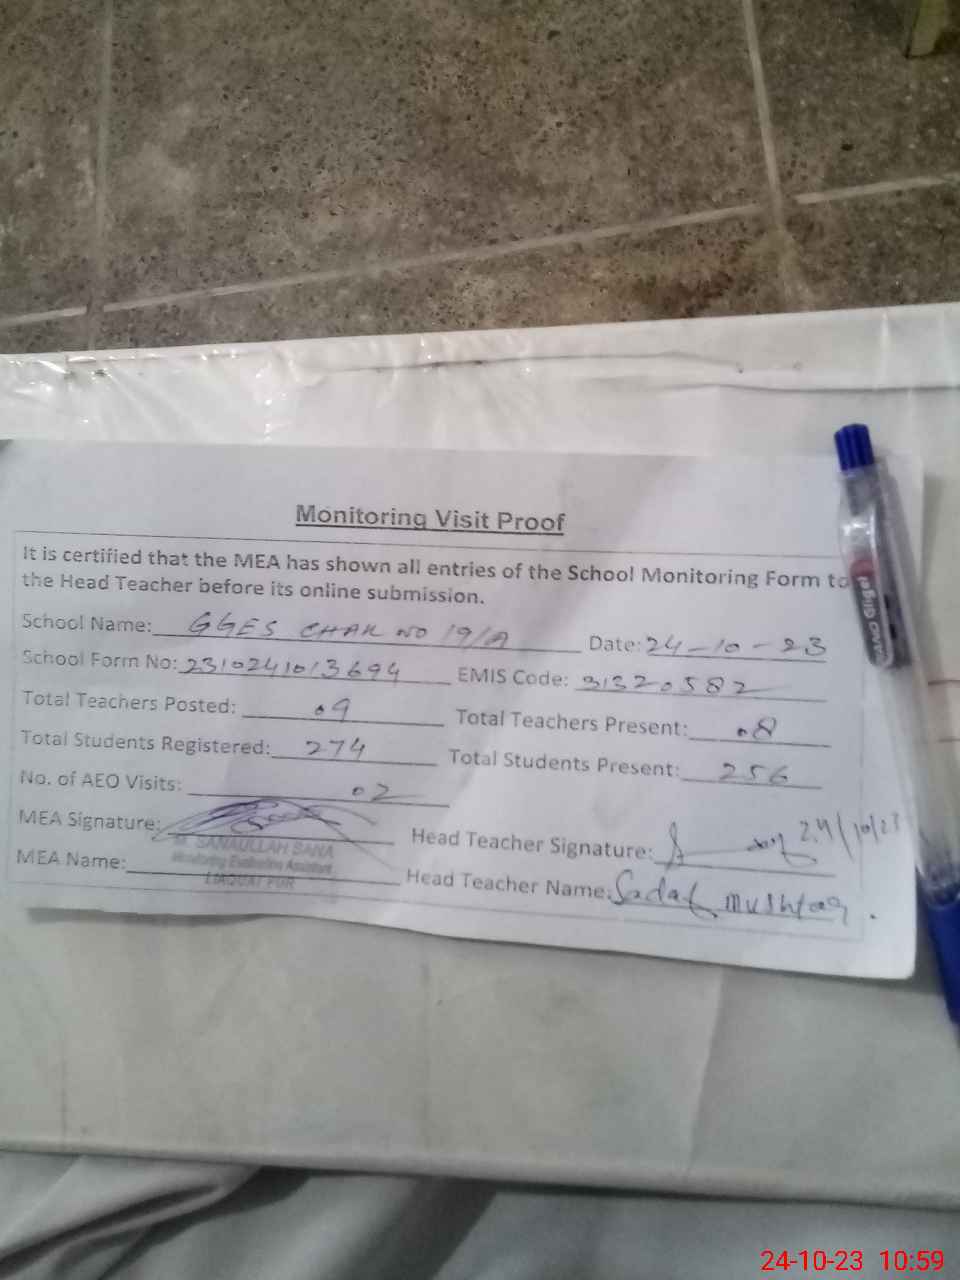 Monitoring Visit Proof
It is certified that the MEA has shown all entries of the School Monitoring Form to
the Head Teacher before its online submission.
School Name: GGES CHAK NO 19/A Date: 24-10-23
School Form No: 2310241013694 EMIS Code: 31320582
Total Teachers Posted: 09 Total Teachers Present: 08
Total Students Registered: 274 Total Students Present: 256
No. of AEO Visits: 02
MEA Signature: Head Teacher Signature: 24/10/23
M. SANAULLAH SANA
Monitoring Evaluation Assistant
LIAQUAT PUR
MEA Name: Head Teacher Name: Sadaf Mushtaq.
Gligel
24-10-23 10:59